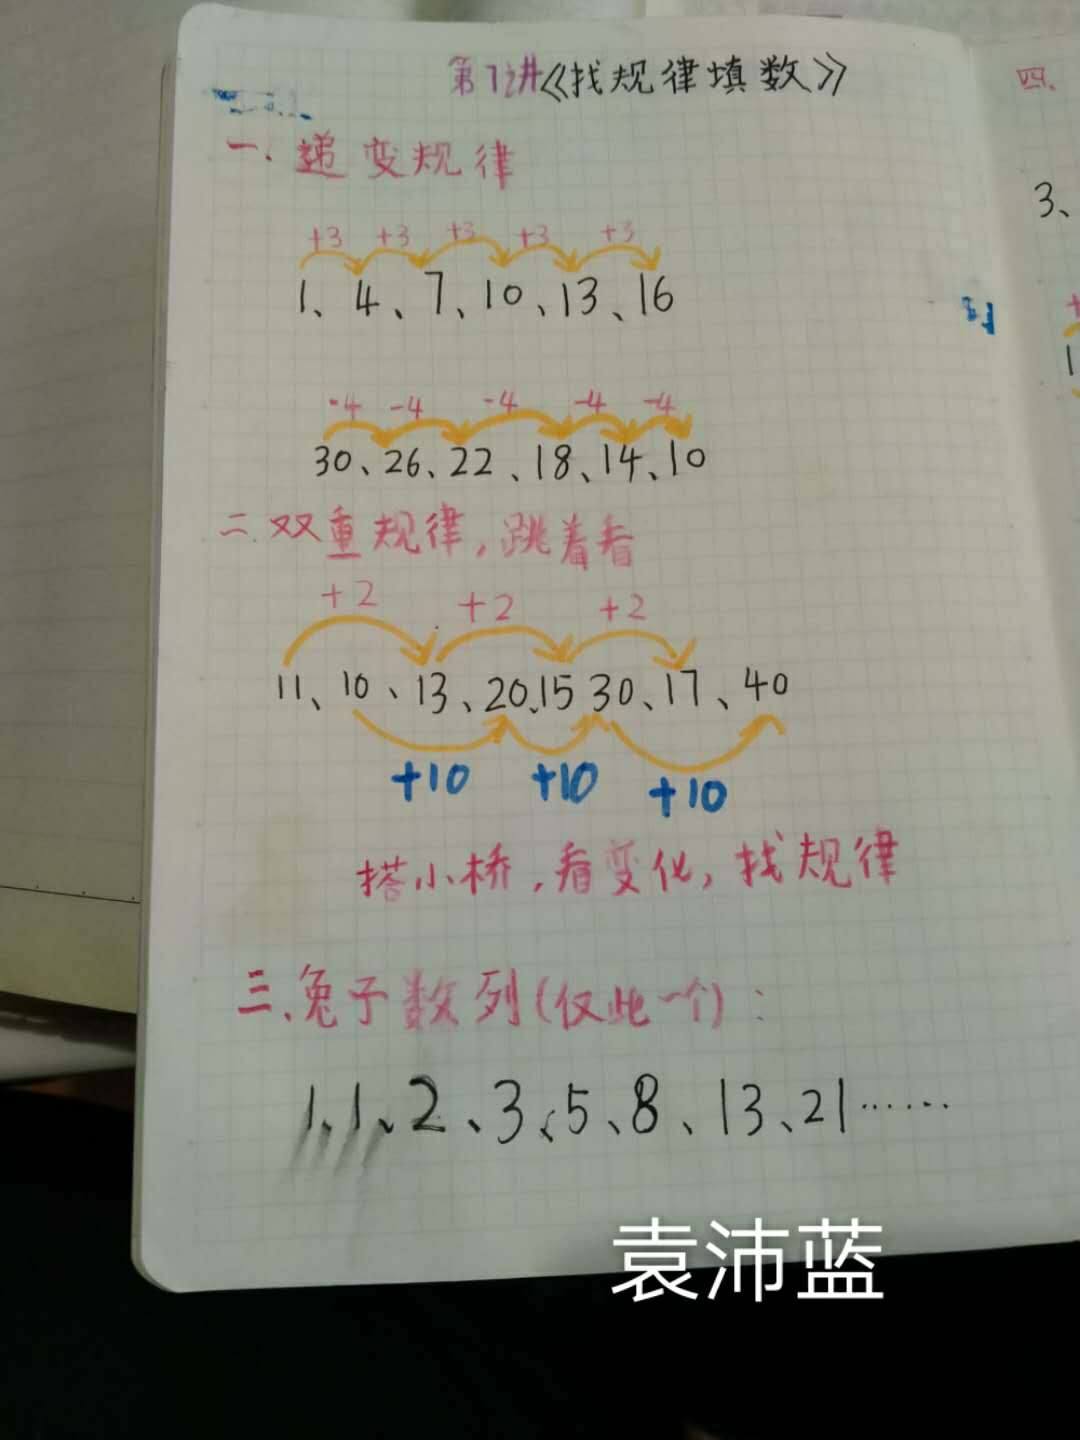 第7讲《找规律填数》
一、递变规律
+3 +3 +3 +3 +3
1、4、7、10、13、16
-4 -4 -4 -4 -4
30、26、22、18、14、10
二、双重规律,跳着看
+2 +2 +2
11、10、13、20、15 30、17、40
+10 +10 +10
搭小桥,看变化,找规律
三、兔子数列(仅此一个):
1、1、2、3、5、8、13、21……
四、
3、
+
1
袁沛蓝